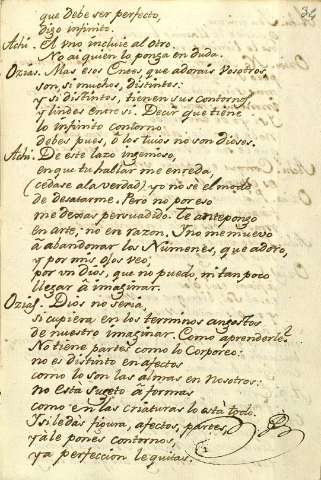 34
que debe ser perfecto,
digo infinito.
Achi. El vno incluie al otro.
No ai quien lo ponga en duda.
Ozias. Mas esos Entes que adorais vosotros,
son si muchos, distintos:
y si distintos, tienen sus contornos
y lindes entre sí. Decir que tiene
lo infinito contorno
debes pues, ô los tuios no son dioses.
Achi. De este lazo ingenioso,
en que tu hablar me enreda,
(cedase a la verdad) yo no sè el modo
de desatarme. Pero no por eso
me dexas persuadido. Te antepongo
en arte; no en razon. I no me muevo
â abandonar los Numenes, que adoro,
y por mis ojos veo;
por vn dios, que no puedo, ni tanpoco
llegar â imaginar.
Ozias. Dios no seria,
si cupiera en los terminos angostos
de nuestro imaginar. Como aprenderle?
No tiene partes como lo Corporeo:
no es distinto en afectos
como lo son las almas en nosotros:
no està sugeto â formas
como en las criaturas lo està todo.
I si le dàs figura, afectos, partes,
y à le pones contornos,
ya perfeccion le quitas.